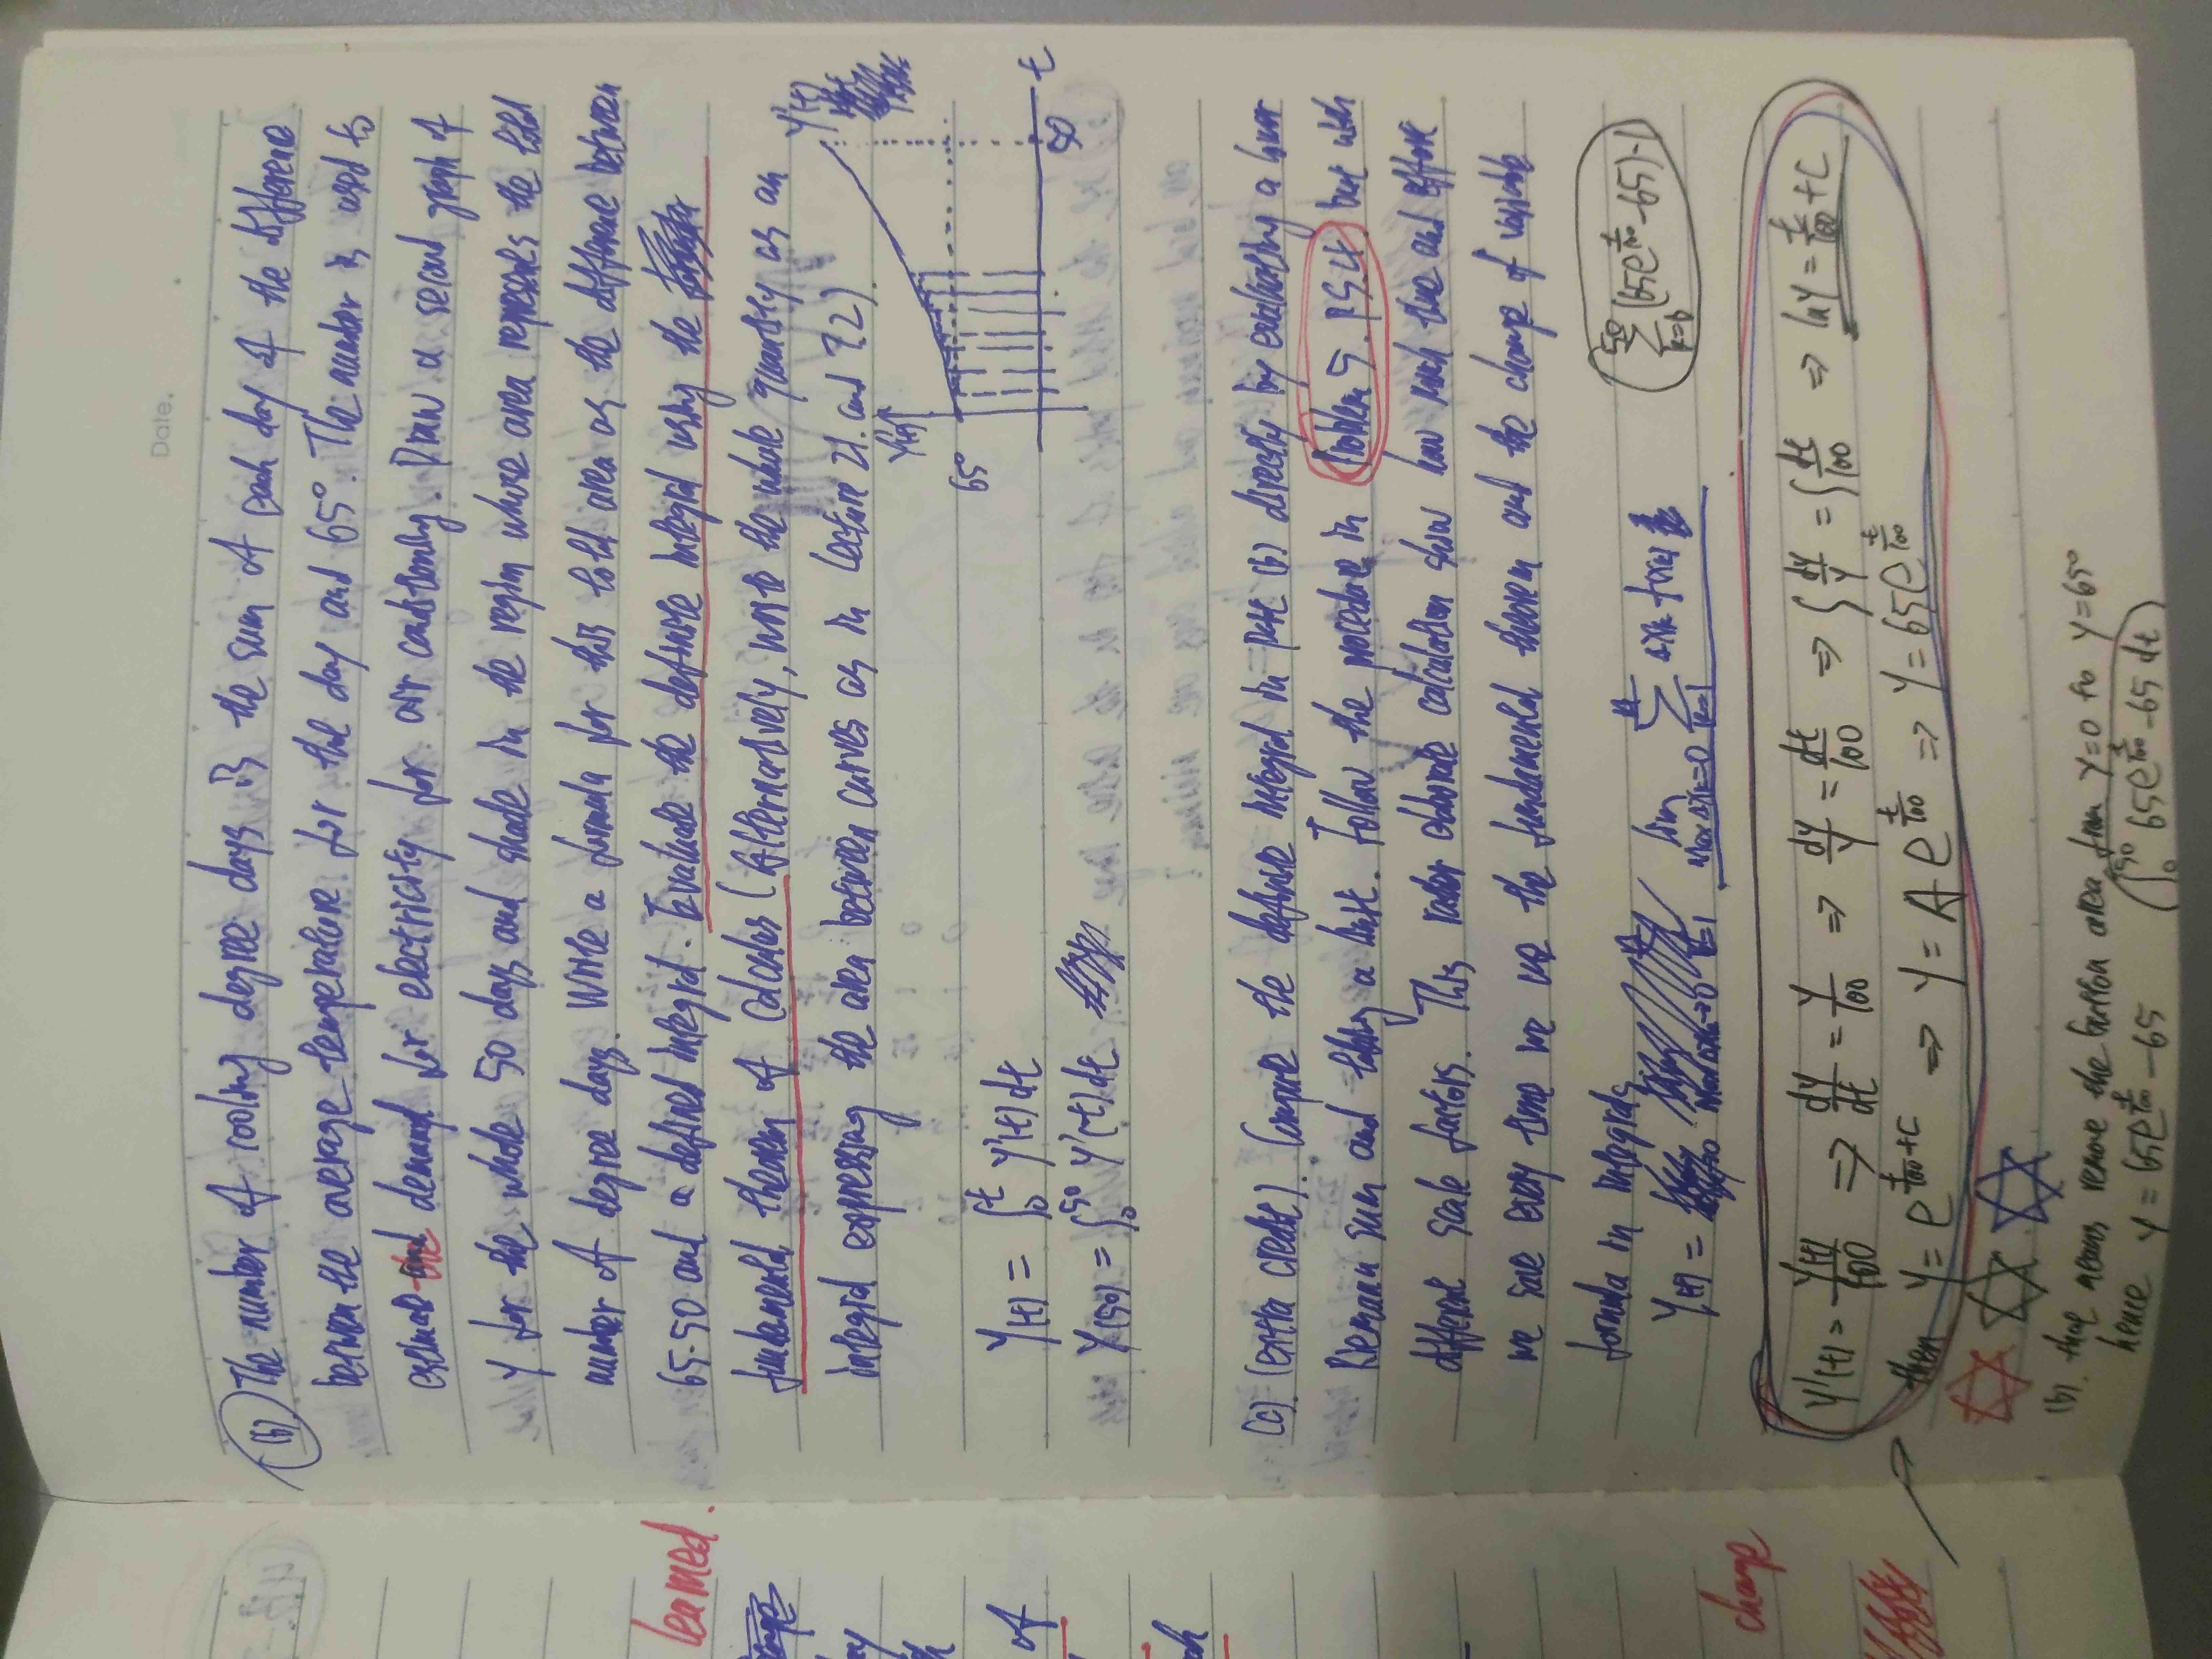 Date.
(b) The number of cooling degree days is the sum of each day of the difference
between the average temperature for the day and 65°. The number is used to
estimate the demand for electricity for air conditioning. Draw a second graph of
y for the whole 50 days and shade in the region whose area represents the total
number of degree days. Write a formula for this total area as the difference between
65·50 and a defined integral. Evaluate the definite integral using the
fundamental theorem of calculus (Alternatively, write the whole quantity as an
integral expressing the area between curves as in Lecture 21. and 22).
y'(t)
y(t)
65°
50
t
y(t) = ∫₀ᵗ y'(t) dt
y(50) = ∫₀⁵⁰ y'(t) dt
(c) (extra credit). Compute the definite integral in part (b) directly by evaluating a lower
Riemann sum and taking a limit. Follow the procedure in Problem 5. PS.4. but with
different scale factors. This rather elaborate calculation show how much time and effort
we save every time we use the fundamental theorem and the change of variable
formula in integrals
y(t) =
lim max Δxk→0 Σ k=1
Σ k=0 50 (65e^(t/100) - 65)·1
y'(t) = y(t)/100 ⇒ dy/dt = y/100 ⇒ dy/y = dt/100 ⇒ ∫ dy/y = ∫ dt/100 ⇒ ln y = t/100 + C
then y = e^(t/100 + C) ⇒ y = A e^(t/100) ⇒ y = 65e^(t/100)
(b). that means remove the button area from y=0 to y=65°
hence y = 65e^(t/100) - 65 ∫₀⁵⁰ 65e^(t/100) - 65 dt
learned.
of
change